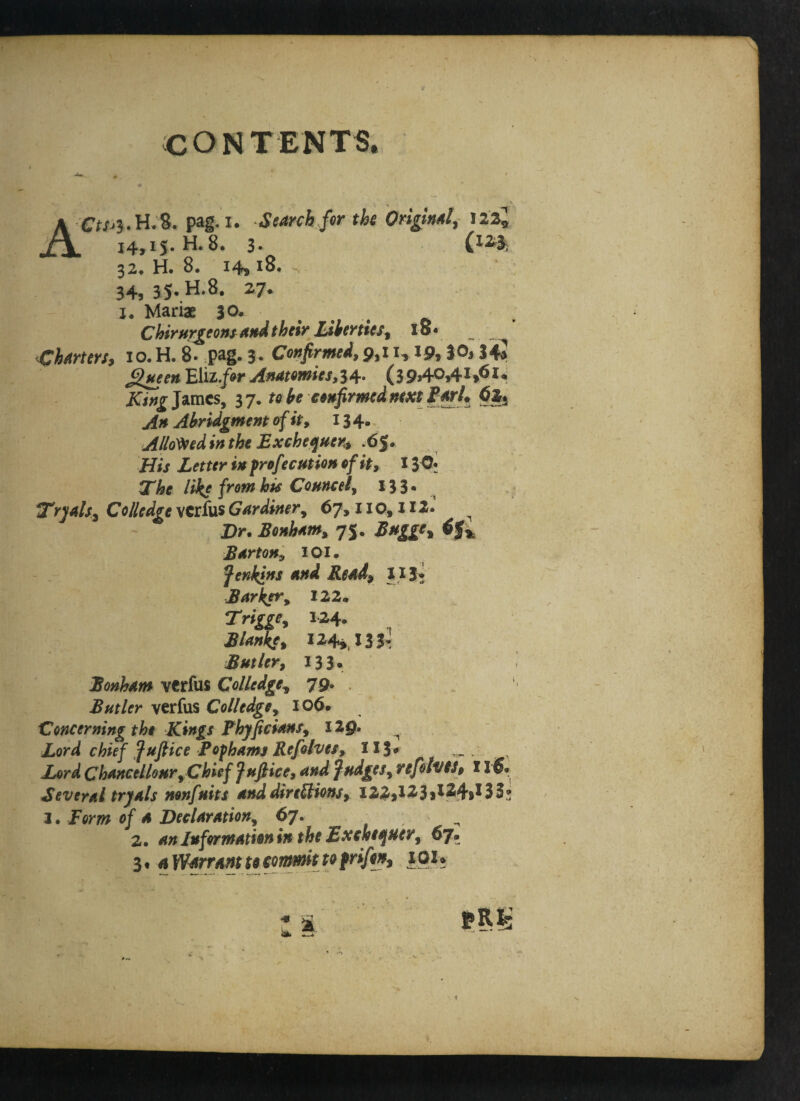 CONTENTS.
ACts,3.H.8. pag. 1. Search for the Original, 122,
14,15. H. 8. 3. (123,
32. H. 8. 14, 18.
34, 35. H.8. 27.
1. Mariæ 30.
Chirurgeons and their Liberties, 18.
Charters, 10. H. 8. pag. 3. Confirmed, 9,11, 19, 30, 34,
Queen Eliz.for Anatomies,34. (39,40,41,61.
King James, 37. to be confirmed next Parl. 62,
An Abridgment of it, 134.
Allowed in the Exchequer, .65.
His Letter in prosecution of it, 130.
The like from his Councel, 133.
Tryals, Colledge versus Gardiner, 67, 110, 112.
Dr. Bonham, 75. Bugge, 65,
Barton, 101.
Jenkins and Read, 113.
Barker, 122.
Trigge, 124.
Blanke, 124, 133.
Butler, 133.
Bonham versus Colledge, 79.
Butler versus Colledge, 106.
Concerning the Kings Physicians, 129.
Lord chief Justice Pophams Resolves, 113.
Lord Chancellour, Chief Justice, and Judges, resolves, 116.
Several tryals nonsuits and directions, 122,123,124,133.
1. Form of a Declaration, 67.
2. an Information in the Exchequer, 67.
3. a Warrant to commit to prison, 101.
a PRE